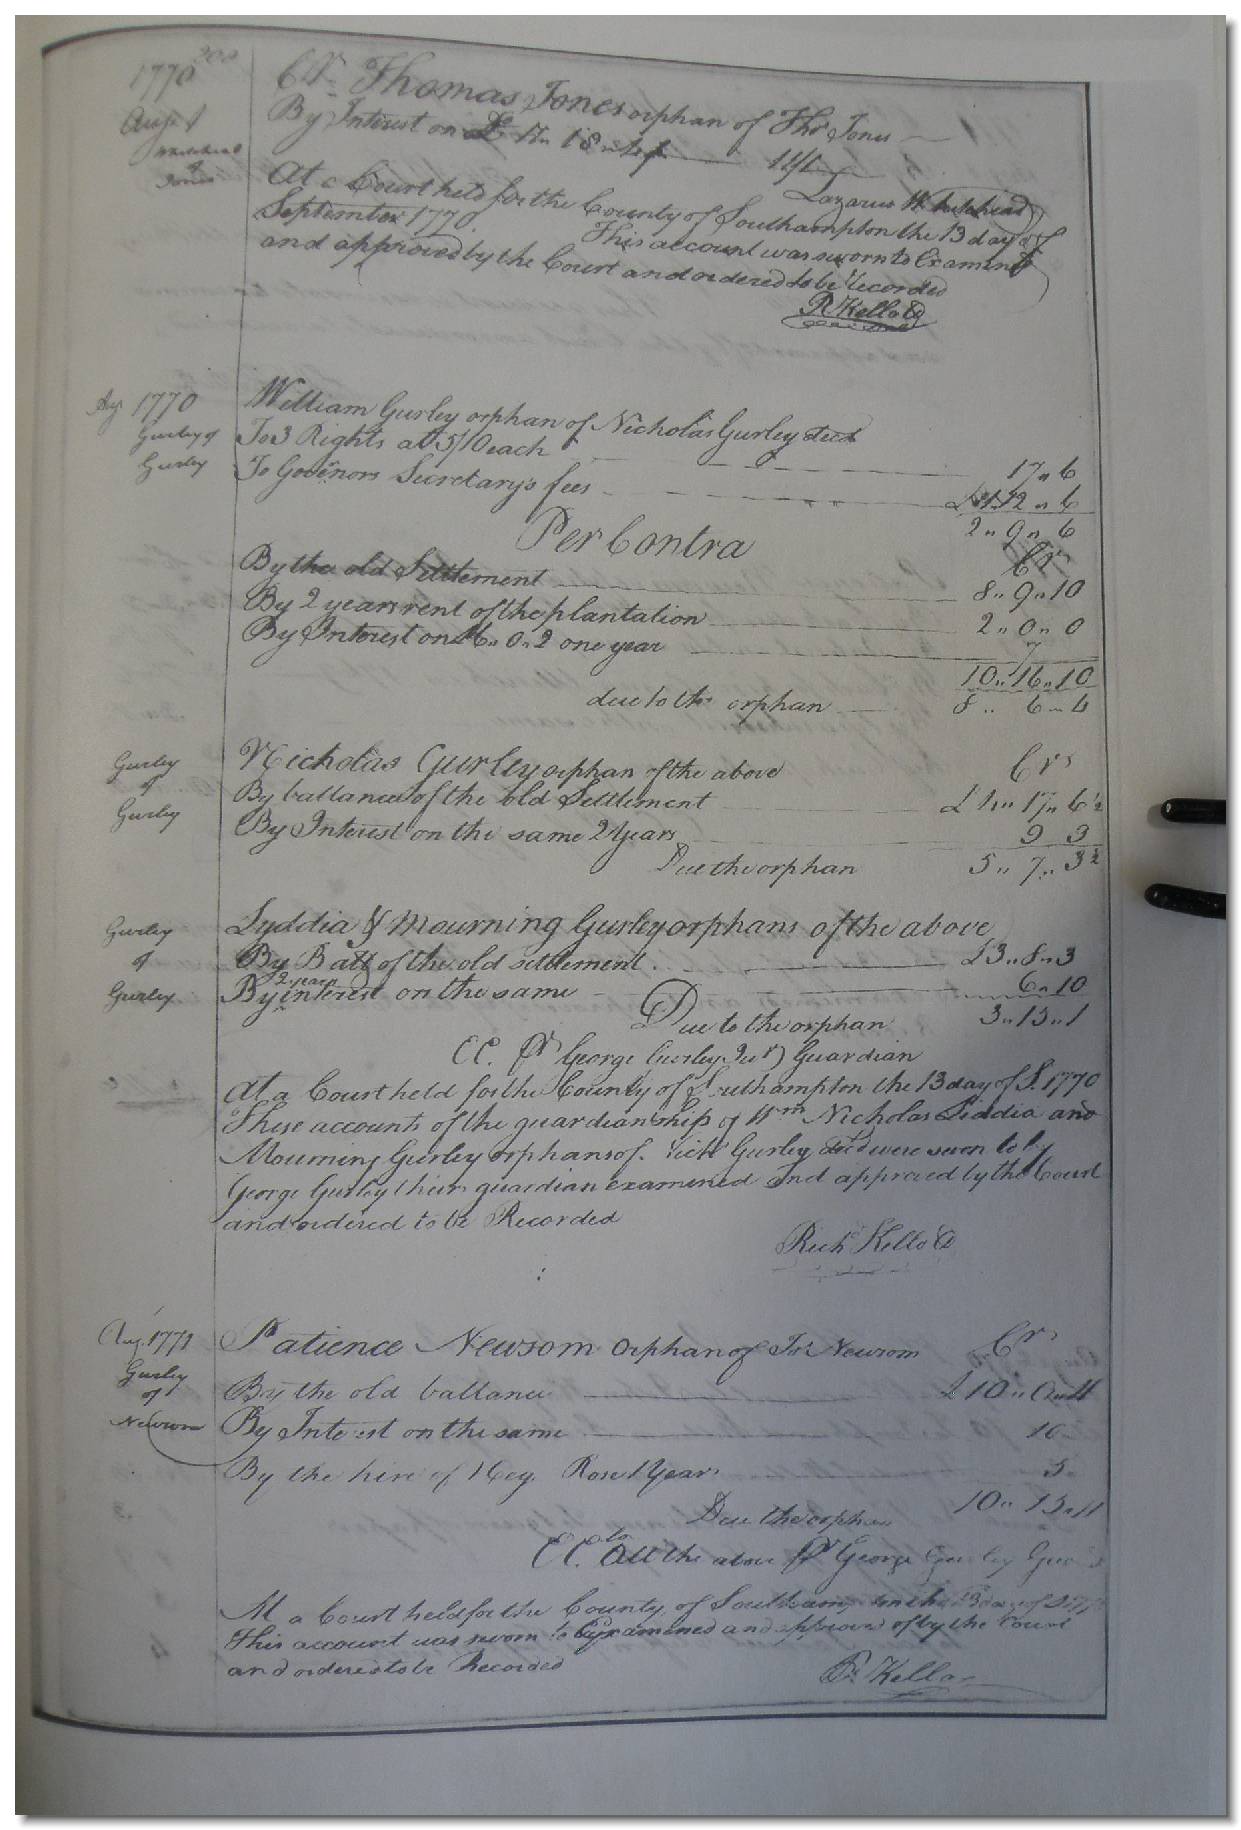 1770 200
Augst
Whitehead
of
Jones
Cr. Thomas Jones orphan of Thos Jones
By Interest on £ 17 " 18 "
At a Court held for the County of Southampton the 13 day of
September 1770
Lazarus Whitehead
This account was sworn to Examind
and approved by the Court and ordered to be recorded
R Kello
Aug 1770
Gurley of
Gurley
William Gurley orphan of Nicholas Gurley decd
To 3 Rights at 5/10 each 17 " 6
To Govenors Secretary's fees £ 1 " 12 " 6
2 " 9 " 6
Per Contra Cr
By the old Settlement 8 " 9 " 10
By 2 years rent of the plantation 2 " 0 " 0
By Interest on 6 " 0 " 2 one year 7
10 " 16 " 10
due to the orphan 8 " 6 " 4
Gurley
of
Gurley
Nicholas Gurley orphan of the above Crs
By ballance of the old Settlement £ 4 " 17 " 6 ½
By Interest on the same 2 Years 9 3
Due the orphan 5 " 7 " 3 ½
Gurley
of
Gurley
Lyddia & Mourning Gurley orphans of the above
By Balle of the old settlement £3 " 8 " 3
2 years
By interest on the same 6 " 10
Due to the orphan 3 " 15 " 1
EE. Pr George Gurley Junr Guardian
At a Court held for the County of Southampton the 13 day of S. 1770
These accounts of the guardianship of Wm Nicholas Liddia and
Mourning Gurley orphans of Nichs Gurley decd were sworn to by
George Gurley their guardian examined and approved by the Court
and ordered to be Recorded
Richd Kello
Aug. 1771
Gurley
of
Newsom
Patience Newsom Orphan of Jos Newsom Crs
By the old ballance £ 10 " 0 " 11
By Interest on the same 10
By the hire of Neg. Rose 1 Year 5
Due the orphan 10 " 15 " 11
EE. to All the above Pr George Gurley
At a Court held for the County of Southampton the 13 day of
This account was sworn to Examined and approved of by the Court
and ordered to be Recorded
R Kello